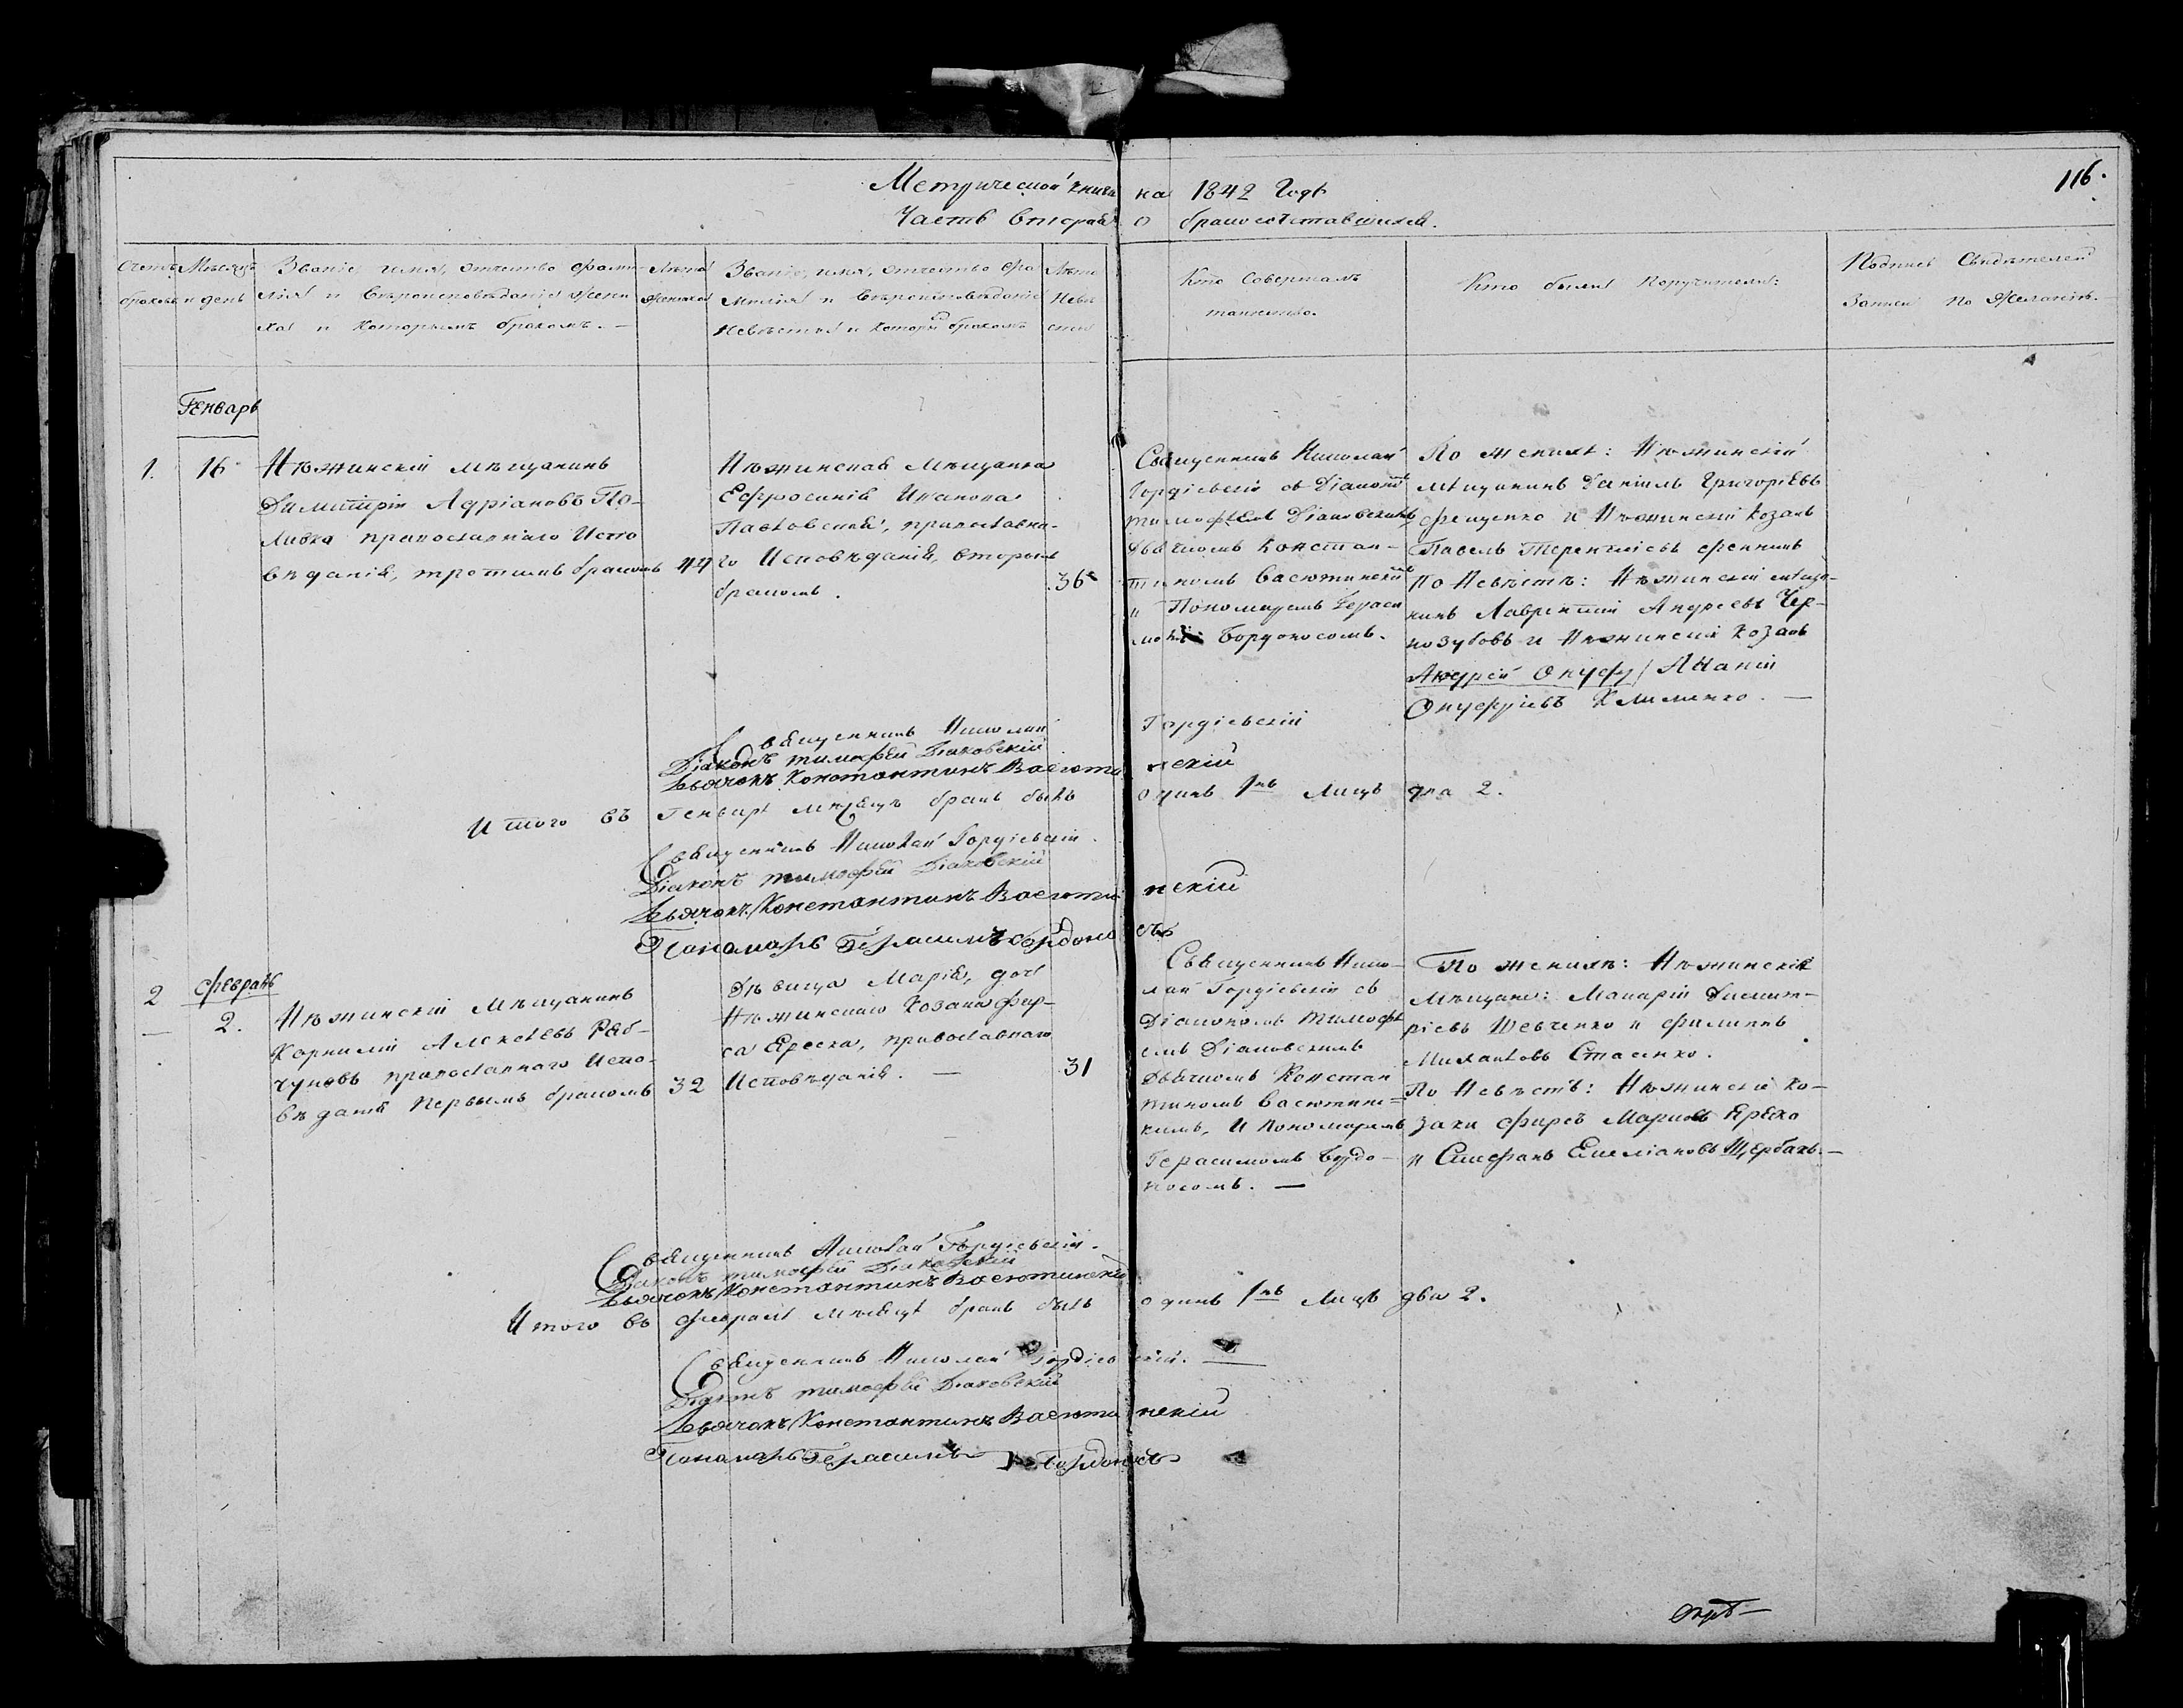 116.
Метрической книги на 1842 Годъ
Часть вторая о бракосочтавшихся.
Счетъ браковъ
Мѣсяцъ и день
Званіе, имя, отчество фами-
лія и вѣроисповѣданіе жени
ха и которымъ бракомъ. —
Лѣта жениха
Званіе, имя, отчество фа
милія и вѣроисповѣданіе
невѣсты и которы бракомъ
Лѣта невѣсты
Кто совершалъ
таинство.
Кто были поручители:
Подпись свидѣтелей
записи по желанію. —
Генварь
1. 16
Нѣжинскій мѣщанинъ
Димитрій Адріановъ По-
ливка православнаго Испо
вѣданія, третимъ бракомъ
44
Нѣжинская Мѣщанка
Ефросинія Иванова
православна-
го Исповѣданія, вторымъ
бракомъ.
36
Священникъ Николай
Гордіевскій съ Діакономъ
тимофѣемъ Діаковскимъ
дьячкомъ Констан-
тиномъ Васютинскимъ
и Пономаремъ Гераси
момъ Бордоносомъ.
По женихѣ: Нѣжинскій
мѣщанинъ Даніилъ Григоріевъ
фещенко и Нѣжинскій козакъ
Павелъ Терентіевъ
По Невѣстѣ: Нѣжинскій мѣща-
нинъ Лаврентій Андреевъ Чер-
нозубовъ и Нѣжинскій козакъ
Андрей Онуфр/ Ананій
Онуфріевъ Клименко. —
Священникъ Николай Гордіевскій
Діаконъ тимофей Діаковскій
Дьячокъ Константинъ Васютинскій
Итого въ Генварѣ мѣсяцѣ бракъ былъ одинъ 1нъ Лицъ два 2.
Священникъ Николай Гордіевскій.
Діаконъ тимофей Діаковскій
Дьячокъ Константинъ Васютинскій
Пономарь Герасимъ Бордоносъ
февраль
2 2.
Нѣжинскій Мѣщанинъ
Корнилій Алексѣевъ Ряб-
чуновъ православнаго Испо-
вѣданія Первымъ бракомъ
32
Дѣвица Марія, дочь
Нѣжинскаго Козака фир-
са Ереска, православнаго
Исповѣданія. —
31
Священникъ Нико-
лай Гордіевскій съ
Діакономъ Тимофѣ
емъ Діаковскимъ
Дьячкомъ Констан
тиномъ Васютинс=
кимъ, и пономаремъ
Герасимомъ Бордо-
носомъ. —
По женихѣ: Нѣжинскіе
Мѣщане: Макарій Димит-
ріевъ Шевченко и филипъ
Михаиловъ Стасенко.
По Невѣстѣ: Нѣжинскіе ко-
заки фирсъ Марковъ Ереско
и Стефанъ Емеліановъ Щербакъ. —
Священникъ Николай Гордіевскій.
Діаконъ тимофей Діаковскій
Дьячокъ Константинъ Васютинскій
Итого въ февралѣ мѣсяцѣ бракъ былъ одинъ 1нъ Лицъ два 2.
Священникъ Николай Гордіевскій.
Діаконъ тимофей Діаковскій
Дьячокъ Константинъ Васютинскій
Пономарь Герасимъ Бордоносъ